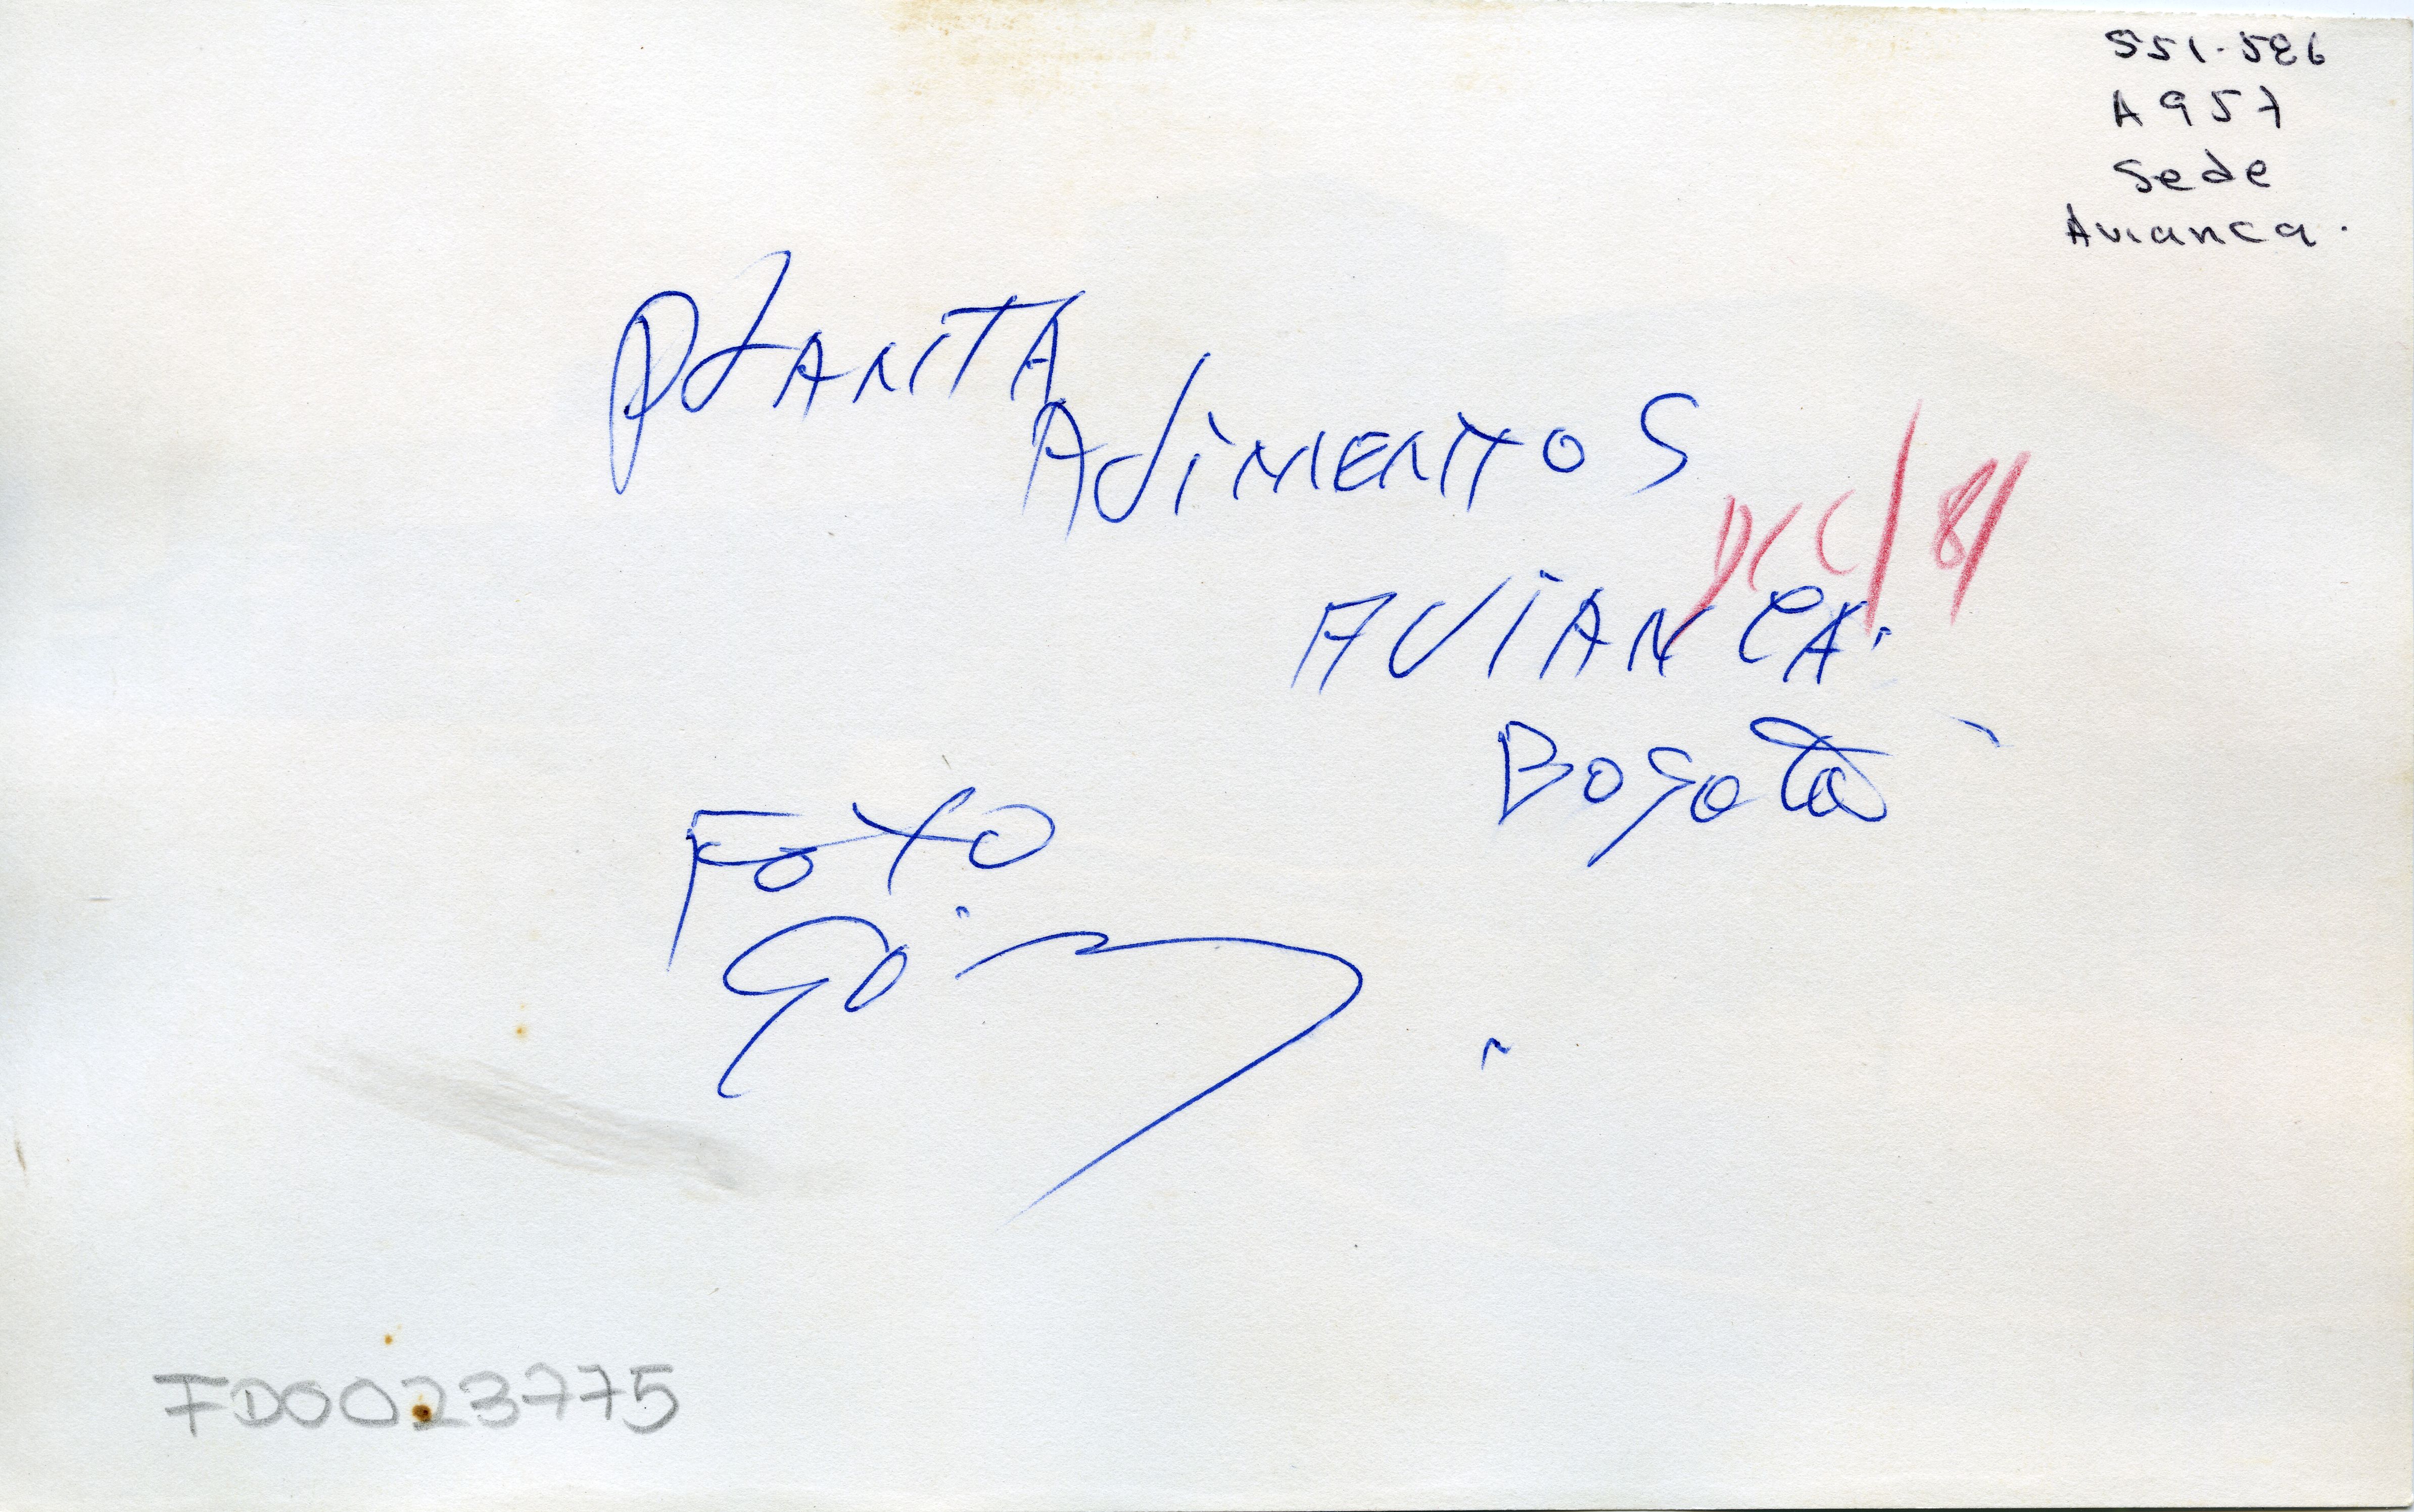 551-586
A957
Sede
Avianca.
PLANTA
ALIMENTOS
DIC/81
AVIANCA.
Bogotá
FOTO
FD0023775